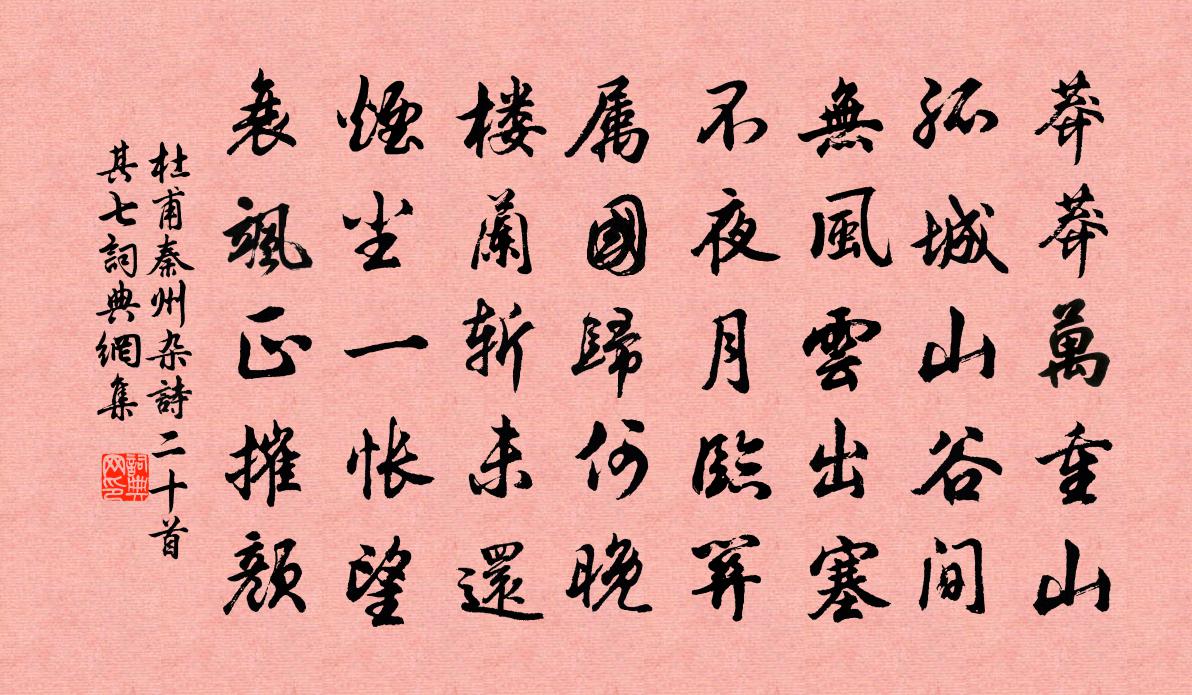 莽莽萬重山
孤城山谷間
無風雲出塞
不夜月臨關
属國歸何晚
楼蘭斬未還
煙尘一怅望
衰颯正摧顏
杜甫秦州杂詩二十首
其七詞典網集
詞典网印